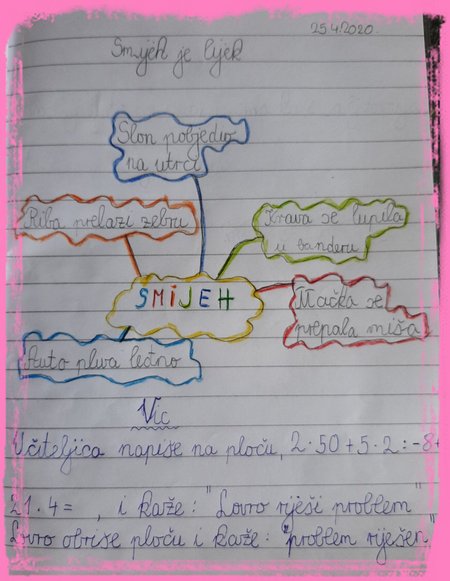 25.4.2020.
Smijeh je lijek
Slon pobjedio
na utrci
Riba prelazi zebru
Krava se lupila
u banderu
SMIJEH
Mačka se
prepala miša
Auto pliva leđno
Vic
Učiteljica napiše na ploču, 2·50+5·2:-8+
21·4= , i kaže: "Lovro riješi problem"
Lovro obriše ploču i kaže: "problem riješen"